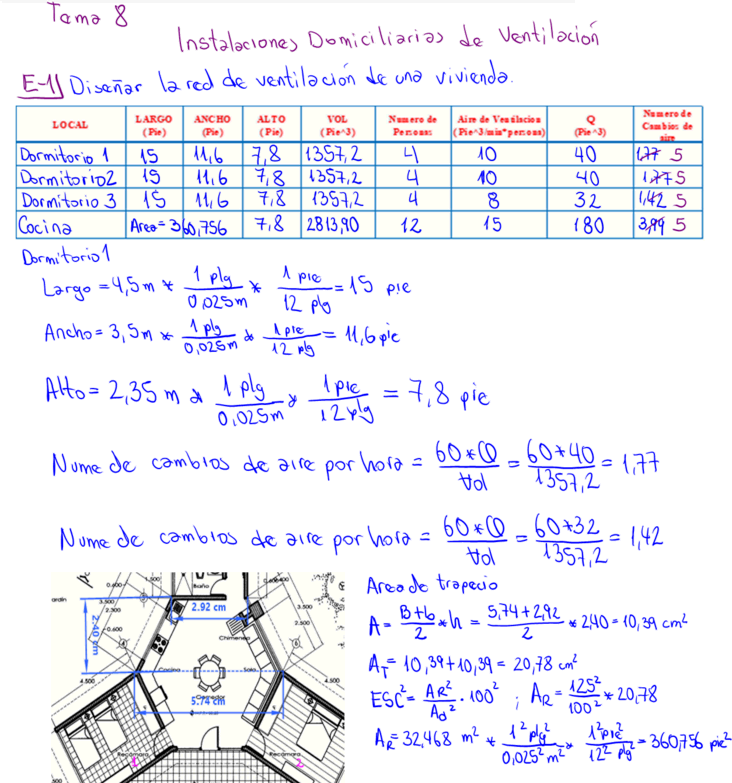 Tema 8
Instalaciones Domiciliarias de Ventilación
E-1) Diseñar la red de ventilación de una vivienda.
LOCAL LARGO (Pie) ANCHO (Pie) ALTO (Pie) VOL (Pie^3) Numero de Personas Aire de Ventilacion (Pie^3/min*persona) Q (Pie^3) Numero de Cambios de aire
Dormitorio 1 15 11,6 7,8 1357,2 4 10 40 1,77 5
Dormitorio 2 15 11,6 7,8 1357,2 4 10 40 1,77 5
Dormitorio 3 15 11,6 7,8 1357,2 4 8 32 1,42 5
Cocina Area = 360,756 7,8 2813,90 12 15 180 3,99 5
Dormitorio 1
Largo = 4,5 m * 1 plg / 0,025 m * 1 pie / 12 plg = 15 pie
Ancho = 3,5 m * 1 plg / 0,025 m * 1 pie / 12 plg = 11,6 pie
Alto = 2,35 m * 1 plg / 0,025 m * 1 pie / 12 plg = 7,8 pie
Nume de cambios de aire por hora = 60*Q / Vol = 60*40 / 1357,2 = 1,77
Nume de cambios de aire por hora = 60*Q / Vol = 60*32 / 1357,2 = 1,42
Area de trapecio
A = B+b / 2 * h = 5,74+2,92 / 2 * 2,40 = 10,39 cm²
A_T = 10,39+10,39 = 20,78 cm²
ESC² = A_R² / A_d² · 100² ; A_R = 125² / 100² * 20,78
A_R = 32,468 m² * 1² plg² / 0,025² m² * 1² pie² / 12² plg² = 360,756 pie²
Baño
0.600
1.500
ardín
3.500
2.300
0.600
2.92 cm
2.40 cm
3.500
2.500
Chimenea
Cocina
Sala
Comedor
4.500
5.74 cm
4.500
Recámara
1
Recámara
2